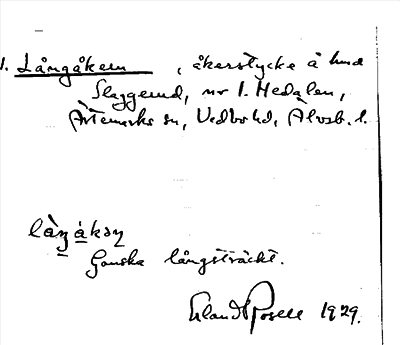 1. Långåkern, åkerstycke å hmd
Slaggerud, nr 1. Hedålen,
Ärtemarks sn, Vedbo hd, Älvsb. l.
låŋåkəṇ
Ganska långsträckt.
Erland Rosell 1929.